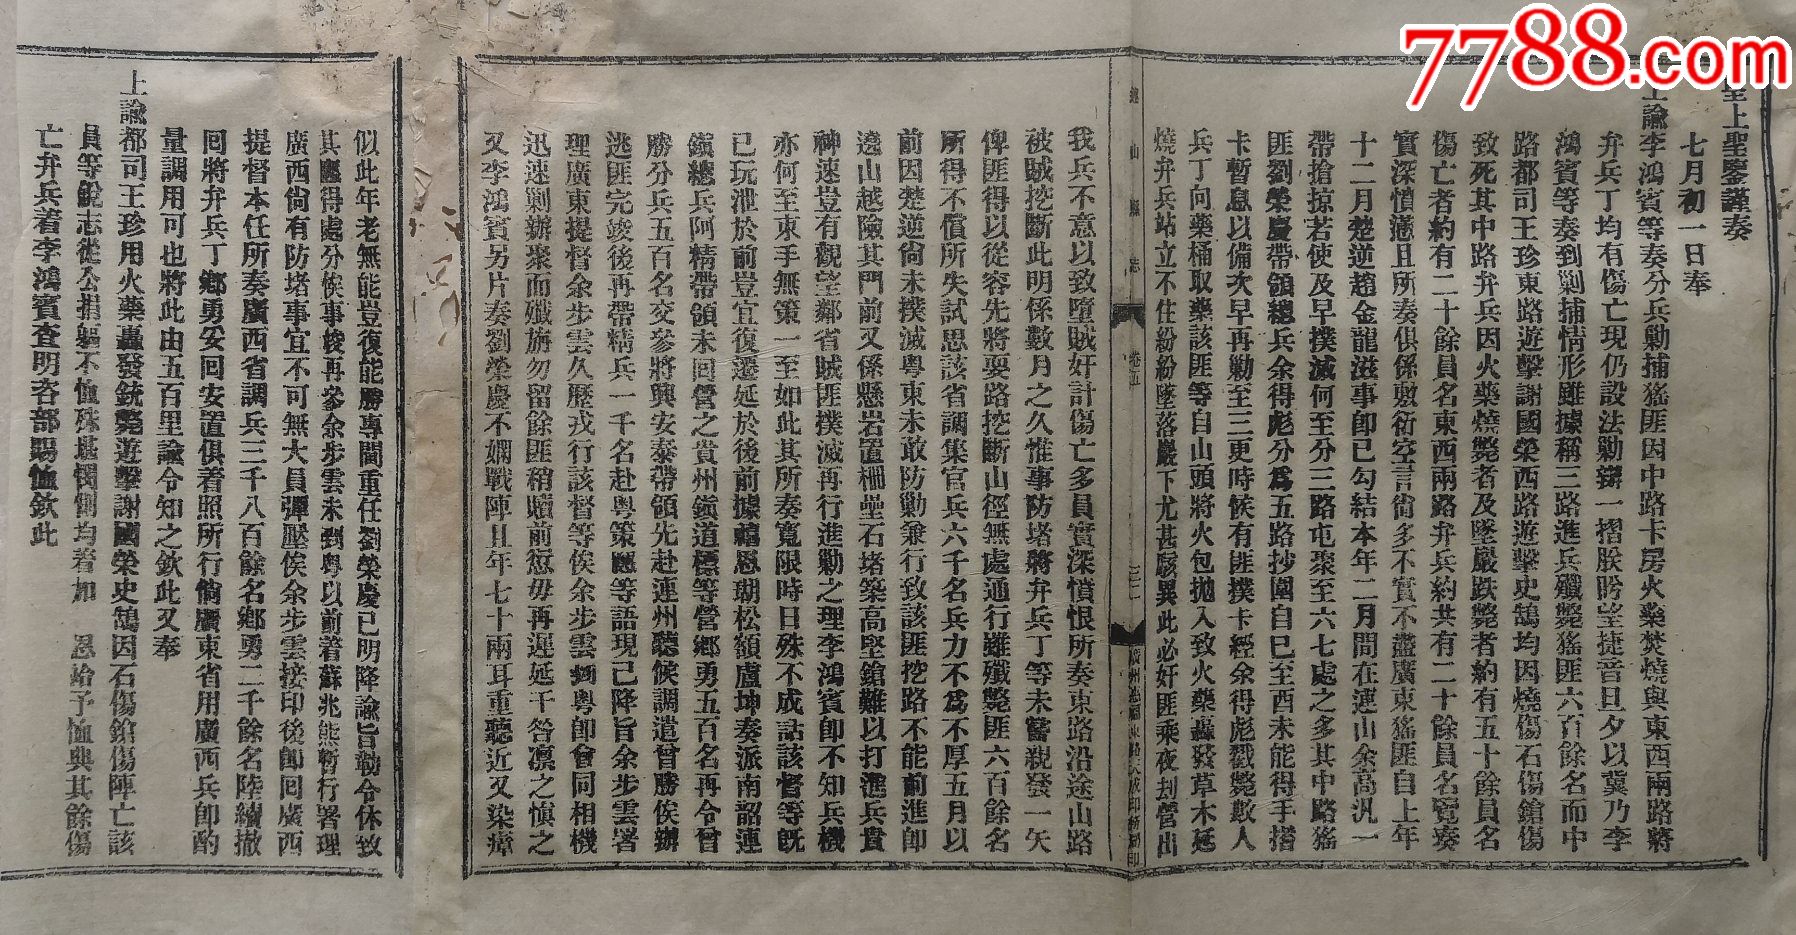 7788.com
聖上聖鑒謹奏
七月初一日奉
上諭李鴻賓等奏分兵勦捕猺匪因中路卡房火藥焚燒與東西兩路將
弁兵丁均有傷亡現仍設法勦辦一摺朕盼望捷音旦夕以冀乃李
鴻賓等奏到剿捕情形雖據稱三路進兵殲斃猺匪六百餘名而中
路都司王珍東路遊擊謝國榮西路遊擊史鵠均因燒傷石傷鎗傷
致死其中路弁兵因火藥燒斃者及墜巖跌斃者約有五十餘員名
傷亡者約有二十餘員名東西兩路弁兵約共有二十餘員名覽奏
實深憤懣且所奏俱係敷衍空言尚多不實不盡廣東猺匪自上年
十二月楚逆趙金龍滋事卽已勾結本年二月間在連山余高汛一
帶搶掠若使及早撲滅何至分三路屯聚至六七處之多其中路猺
匪劉榮慶帶領總兵余得彪分爲五路抄圍自巳至酉未能得手摺
卡暫息以備次早再勦至三更時候有匪撲卡經余得彪戳斃數人
兵丁向藥桶取藥該匪等自山頭將火包拋入致火藥轟發草木延
燒弁兵站立不住紛紛墜落巖下尤甚駭異此必奸匪乘夜刦營出
連山縣志 卷五
我兵不意以致墮賊奸計傷亡多員實深憤恨所奏東路沿途山路
被賊挖斷此明係數月之久惟事防堵將弁兵丁等未嘗親發一矢
俾匪得以從容先將要路挖斷山徑無處通行雖殲斃匪六百餘名
所得不償所失試思該省調集官兵六千名兵力不爲不厚五月以
前因楚逆尙未撲滅粵東未敢防勦兼行致該匪挖路不能前進卽
遶山越險其門前又係懸岩置柵壘石堵築高堅鎗難以打進兵貴
神速豈有觀望鄰省賊匪撲滅再行進勦之理李鴻賓卽不知兵機
亦何至束手無策一至如此其所奏寬限時日殊不成話該督等旣
已玩泄於前豈宜復遷延於後前據禧恩瑚松額盧坤奏派南韶連
鎭總兵阿精帶領未回營之貴州鎭道標等營鄉勇五百名再令曾
勝分兵五百名交參將興安泰帶領先赴連州聽候調遣曾勝俟辦
逃匪完竣後再帶精兵一千名赴粵策應等語現已降旨余步雲署
理廣東提督余步雲久歷戎行該督等俟余步雲到粵卽會同相機
迅速剿辦聚而殲旃勿留餘匪稍贖前愆毋再遲延干咎凛之愼之
又李鴻賓另片奏劉榮慶不嫻戰陣且年七十兩耳重聽近又染瘴
似此年老無能豈復能勝專閫重任劉榮慶已明降諭旨勒令休致
其應得處分俟事竣再參余步雲未到粵以前着蘇兆熊暫行署理
廣西尙有防堵事宜不可無大員彈壓俟余步雲接印後卽回廣西
提督本任所奏廣西省調兵三千八百餘名鄉勇二千餘名陸續撤
回將弁兵丁鄉勇妥回安置俱着照所行倘廣東省用廣西兵卽酌
量調用可也將此由五百里諭令知之欽此又奉
上諭都司王珍用火藥轟發銃斃遊擊謝國榮史鵠因石傷鎗傷陣亡該
員等銳志從公捐軀不恤殊堪憫惻均著加恩給予恤典其餘傷
亡弁兵着李鴻賓查明咨部賜恤欽此